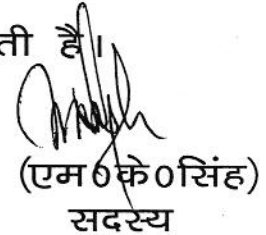 ती है।
(एम०के०सिंह)
सदस्य